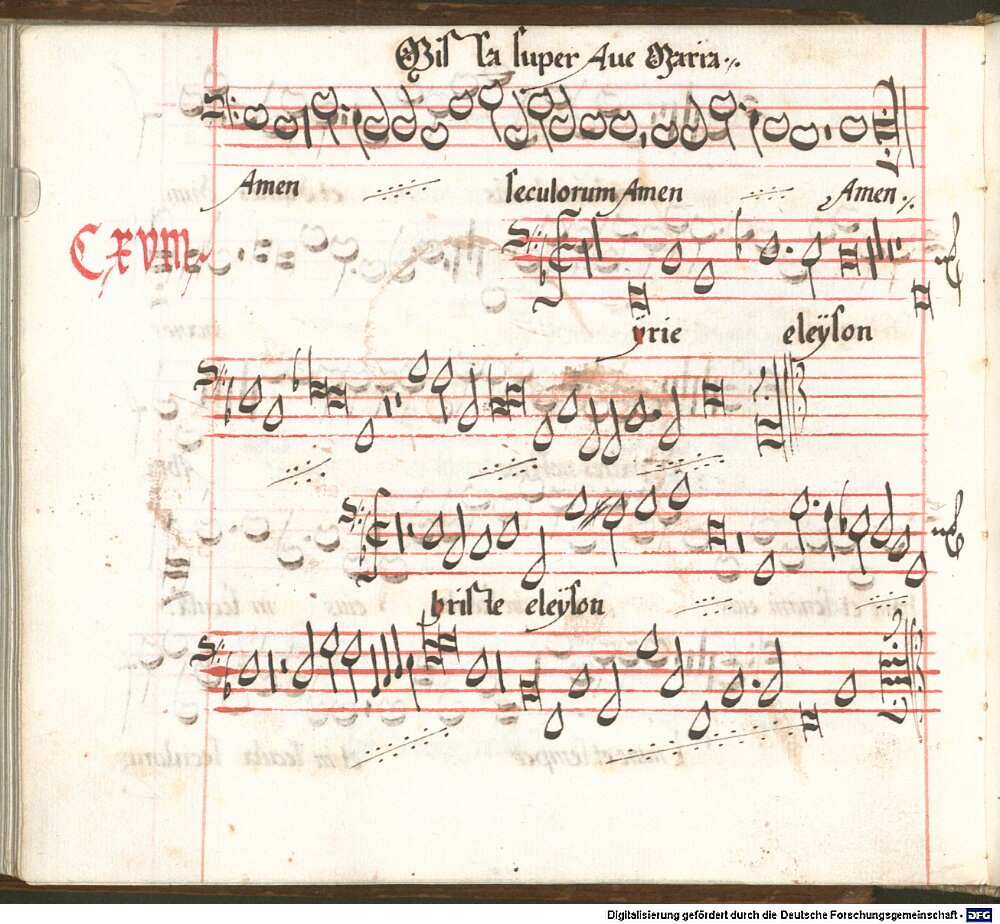 Missa super Aue Maria
Amen seculorum Amen Amen
CXVIII
yrie eleÿson
hriste eleÿson
Digitalisierung gefördert durch die Deutsche Forschungsgemeinschaft - DFG